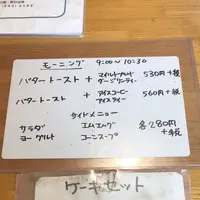 モーニング 9:00〜10:30
バタートースト + マイルドブレンド
ダージリンティー 530円+税
バタートースト + アイスコーヒー
アイスティー 560円+税
サイドメニュー
サラダ エムエッグ 各280円
ヨーグルト コーンスープ +税
ケーキセット